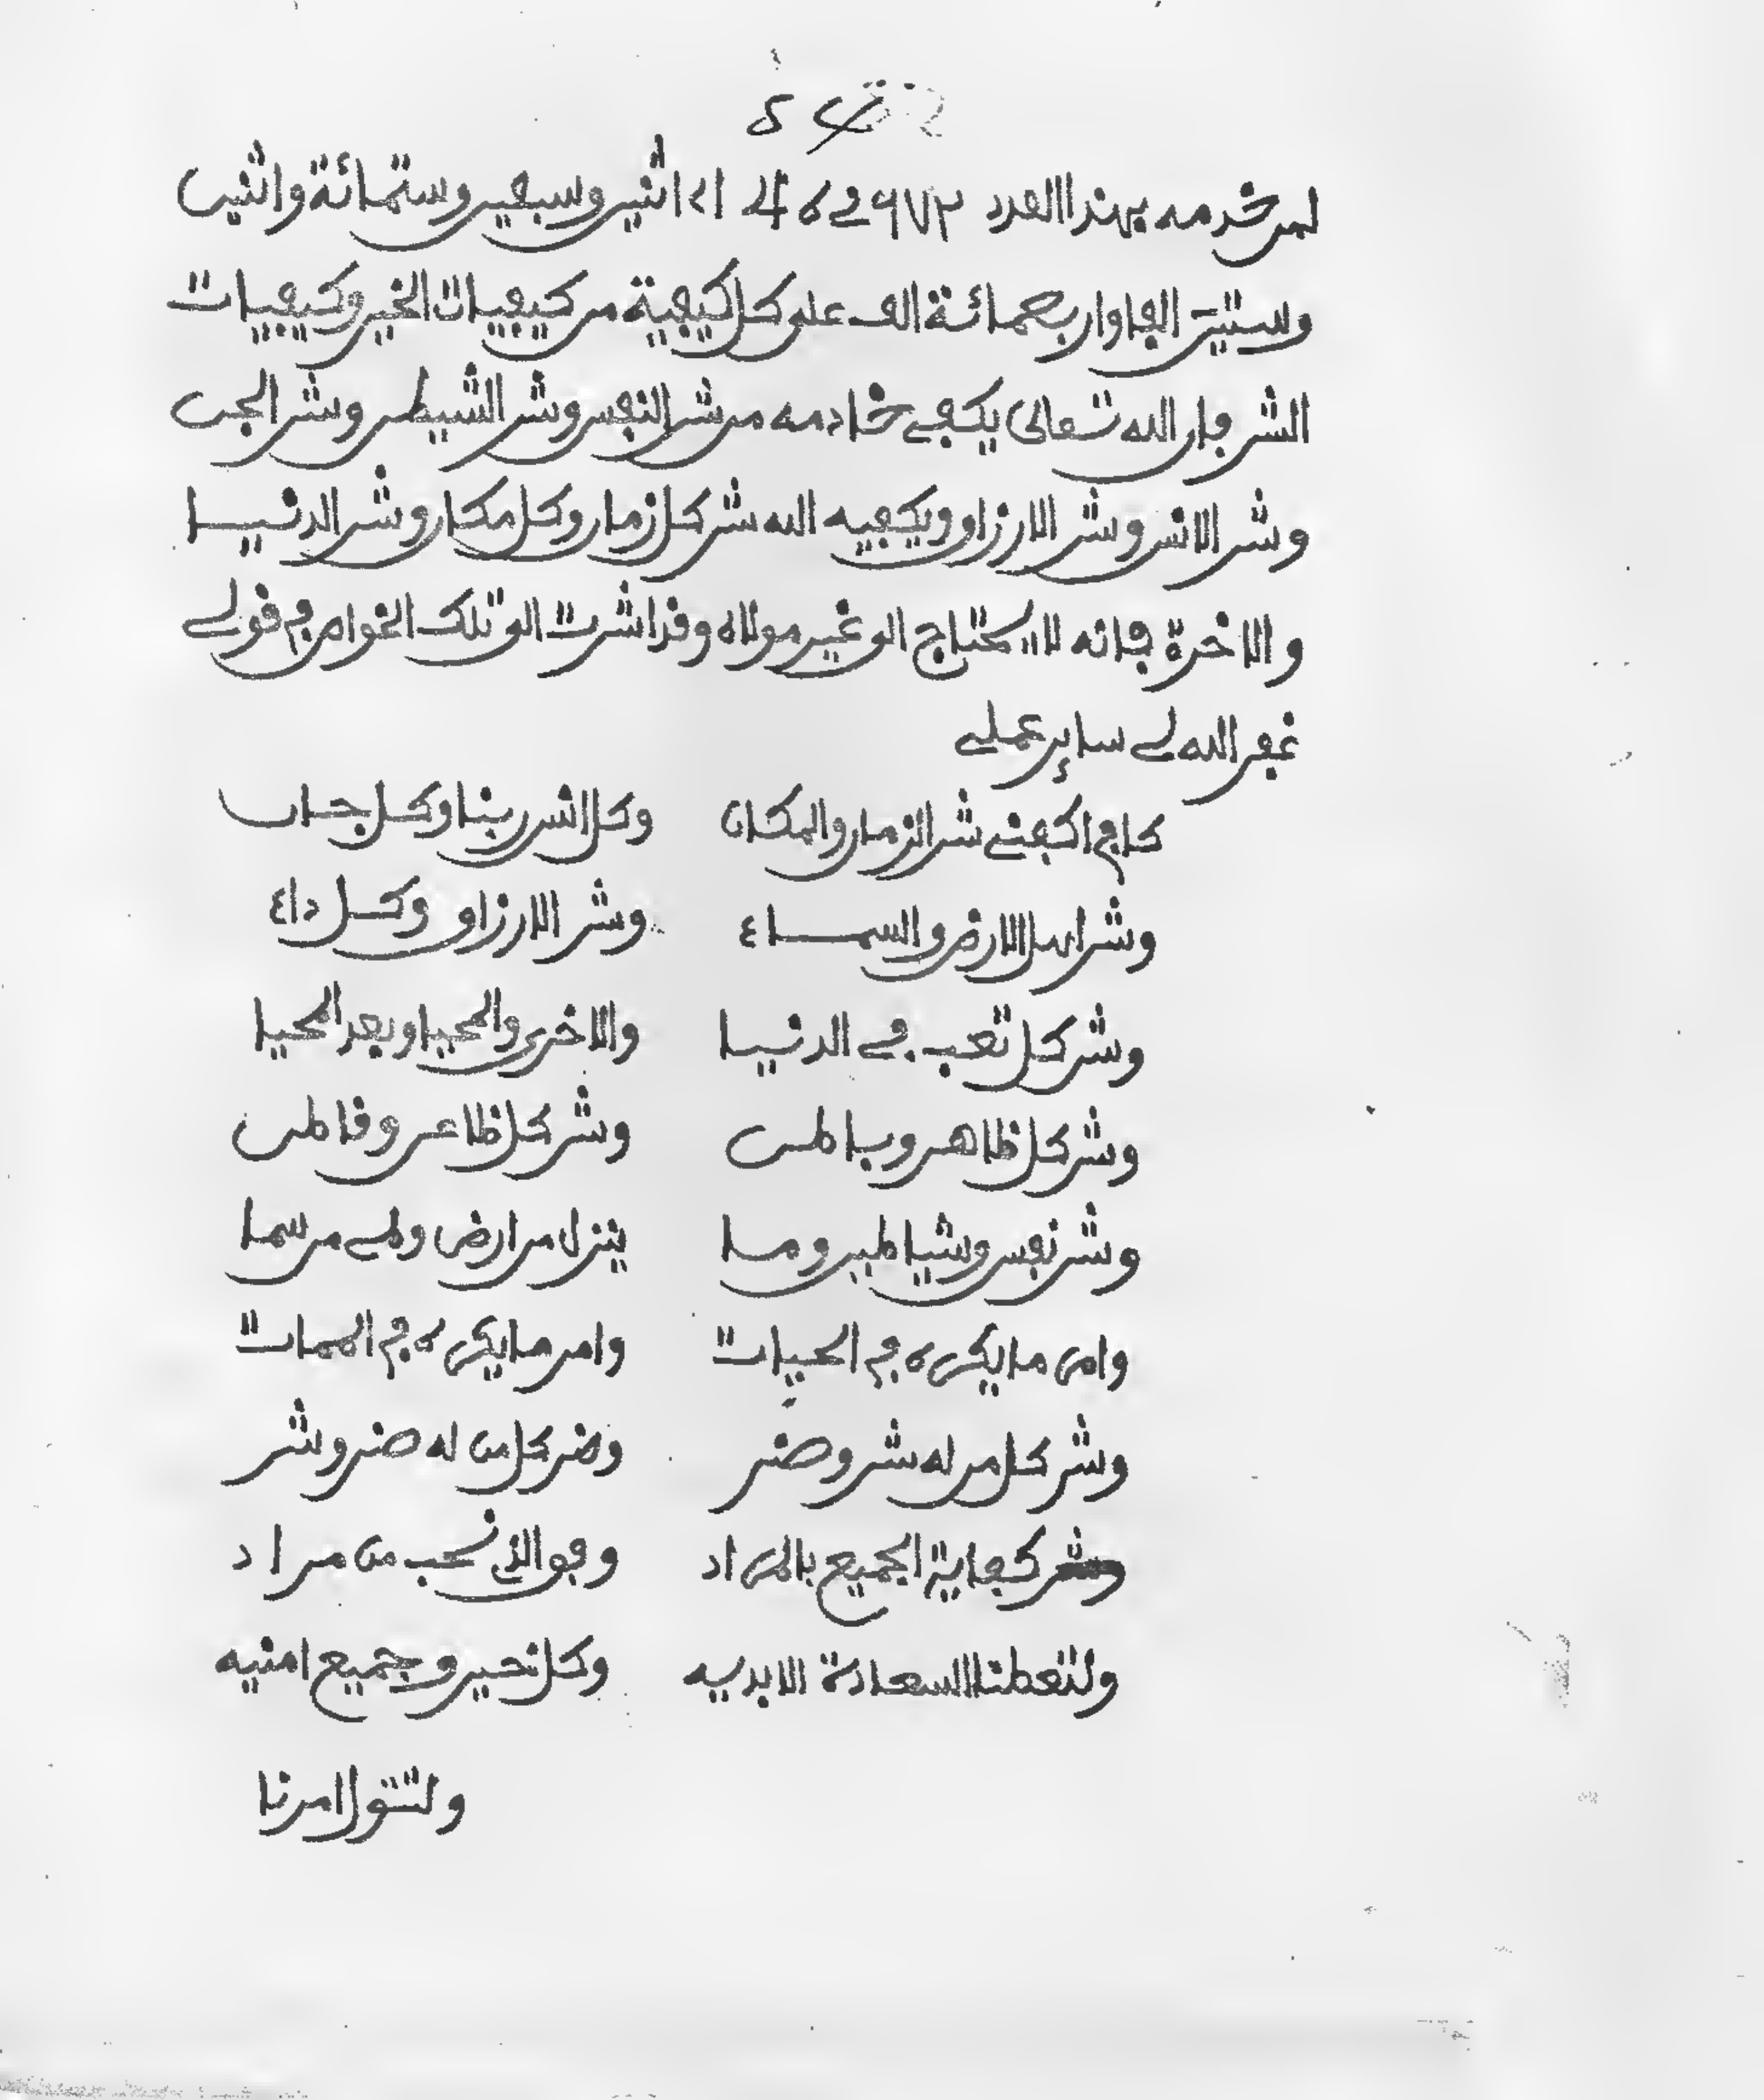 لمن خدمه بهذا العدد ٤٦٢٦٧٢ اي اثنين وسبعين وستمائة واثنين
وستين الفا واربعمائة الف على كل كيفية من كيفيات الخير وكيفيات
الشر فان الله تعالى يكفي خادمه من شر النفس وشر الشيطن وشر الجن
وشر الانس وشر الارزاق ويكفيه الله شر كل زمان وكل مكان وشر الدنيا
والاخرة فانه لا يحتاج الى غير مولاه وقد اشرت الى تلك الخواص في قولي
غفر الله لي ساير عملي
كاف اكفني شر الزمان والمكان وكل انس ربنا وكل جان
وشر اهل الارض والسماء وشر الارزاق وكل داء
وشر كل تعب في الدنيا والاخرى والمحيا وبعد المحيا
وشر كل ظاهر وباطن وشر كل ظاعن وقاطن
وشر نفس وشياطين وما ينزل من ارض ولي من سما
وامن ما يكره في الحيات وامن ما يكره في الممات
وشر كل من له شر وضر وضر كل من له ضر وشر
كفاية الجميع بالمراد وفق الذي نحب من مراد
ولتعطنا السعادة الابديه وكل خير وجميع امنيه
ولتتول امرنا